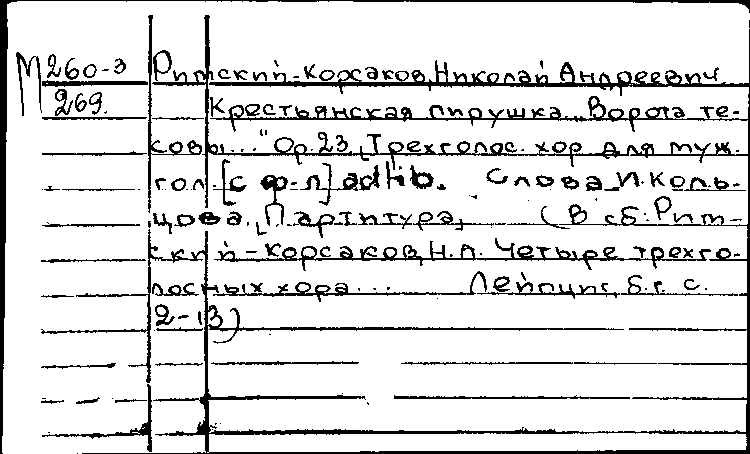 М 260-3 Римский-Корсаков, Николай Андреевич
269. Крестьянская пирушка. „Ворота те-
совы..." Ор. 23. Трехголос. хор для муж.
гол. [с ф-п] ad lib. Слова И. Коль-
цова. Партитура, (В сб: Рим-
ский-Корсаков, Н.А. Четыре трехго-
лосных хора... Лейпциг, б.г. с.
2-13)